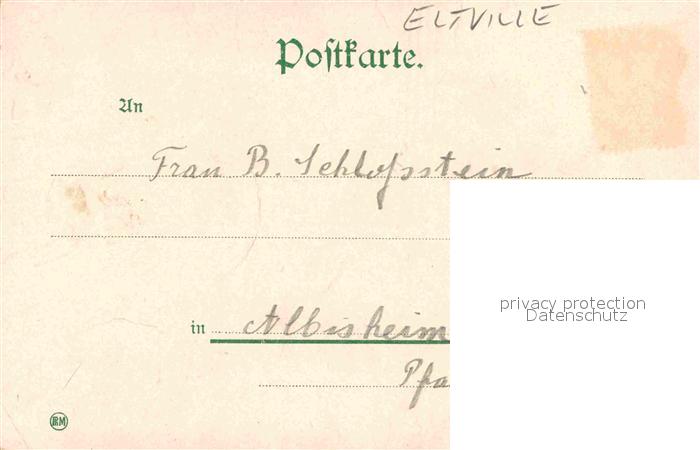 ELTVILLE
Postkarte.
An
Frau B. Schloßstein
in Albisheim
Pfa
privacy protection
Datenschutz
PRM